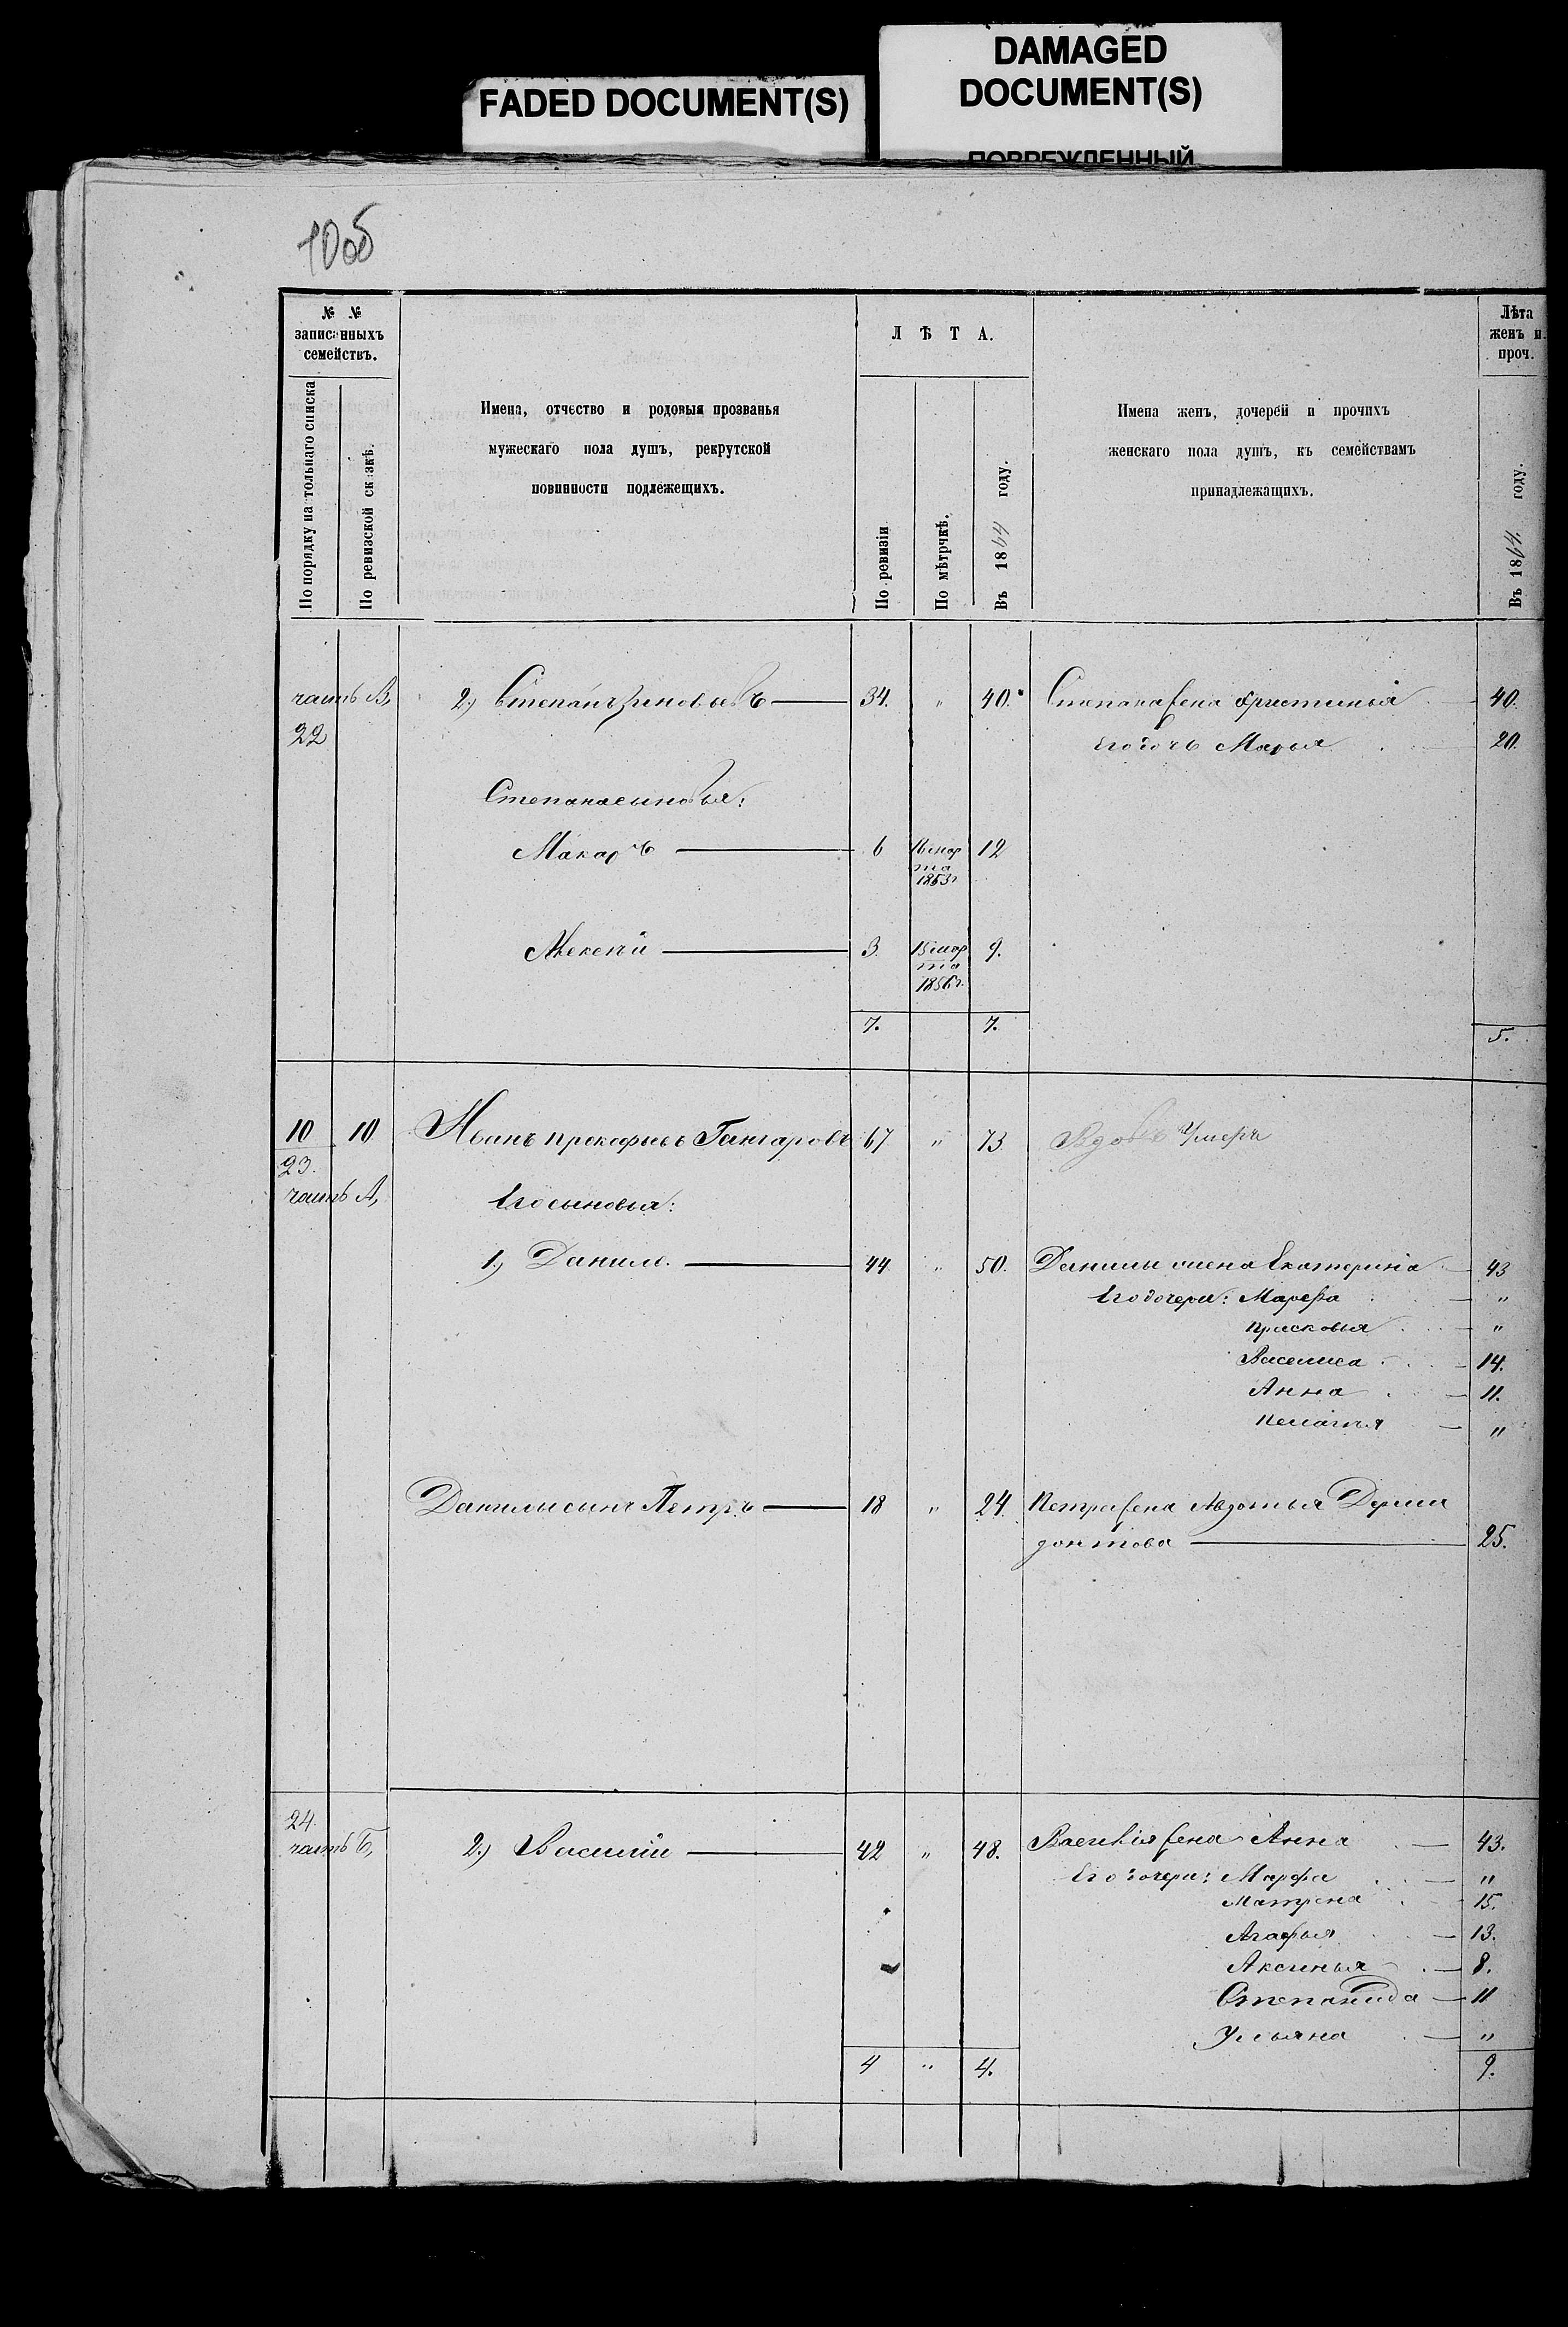 FADED DOCUMENT(S)
DAMAGED
DOCUMENT(S)
ПОВРЕЖДЕННЫЙ
10об
№ №
записанныхъ
семействъ.
По порядку на тольнаго списка
По ревизской сказкѣ.
Имена, отчество и родовыя прозванья
мужескаго пола душъ, рекрутской
повинности подлежещихъ.
ЛѢТА.
По ревизіи
По мѣтрчкѣ.
Въ 1844 году.
Имена женъ, дочерей и прочихъ
женскаго пола душъ, къ семействамъ
принадлежащихъ.
Лѣта
женъ и
проч.
Въ 18 году.
часть В, 2.) Степанъ Зиновьевъ 34. " 40. Степана жена Христинья 40.
22 Его дочь Марья 20.
Степана сыновья:
Макаръ 6 16 мар 12
та
1853г
Алексѣй 3. 15 мар 9.
та
1856г.
7. 7. 5.
10 10 Иванъ Прокофьевъ Гангаровъ 67 " 73 Вдовъ Умеръ
23.
часть А, Его сыновья:
1.) Данила 44 " 50. Данилы жена Екатерина 43
Его дочери: Марефа "
Прасковья "
Василиса 14.
Анна 11.
Пелагѣя "
Данилы сынъ Петръ 18 " 24. Петра жена Авдотья
25.
24.
часть Б, 2.) Василій 42 " 48. Василія жена Анна 43.
Его дочери: Марфа "
Матрена 15.
Агафья 13.
Аксинья 8.
Степанида 11
Ульяна "
4 " 4. 9.